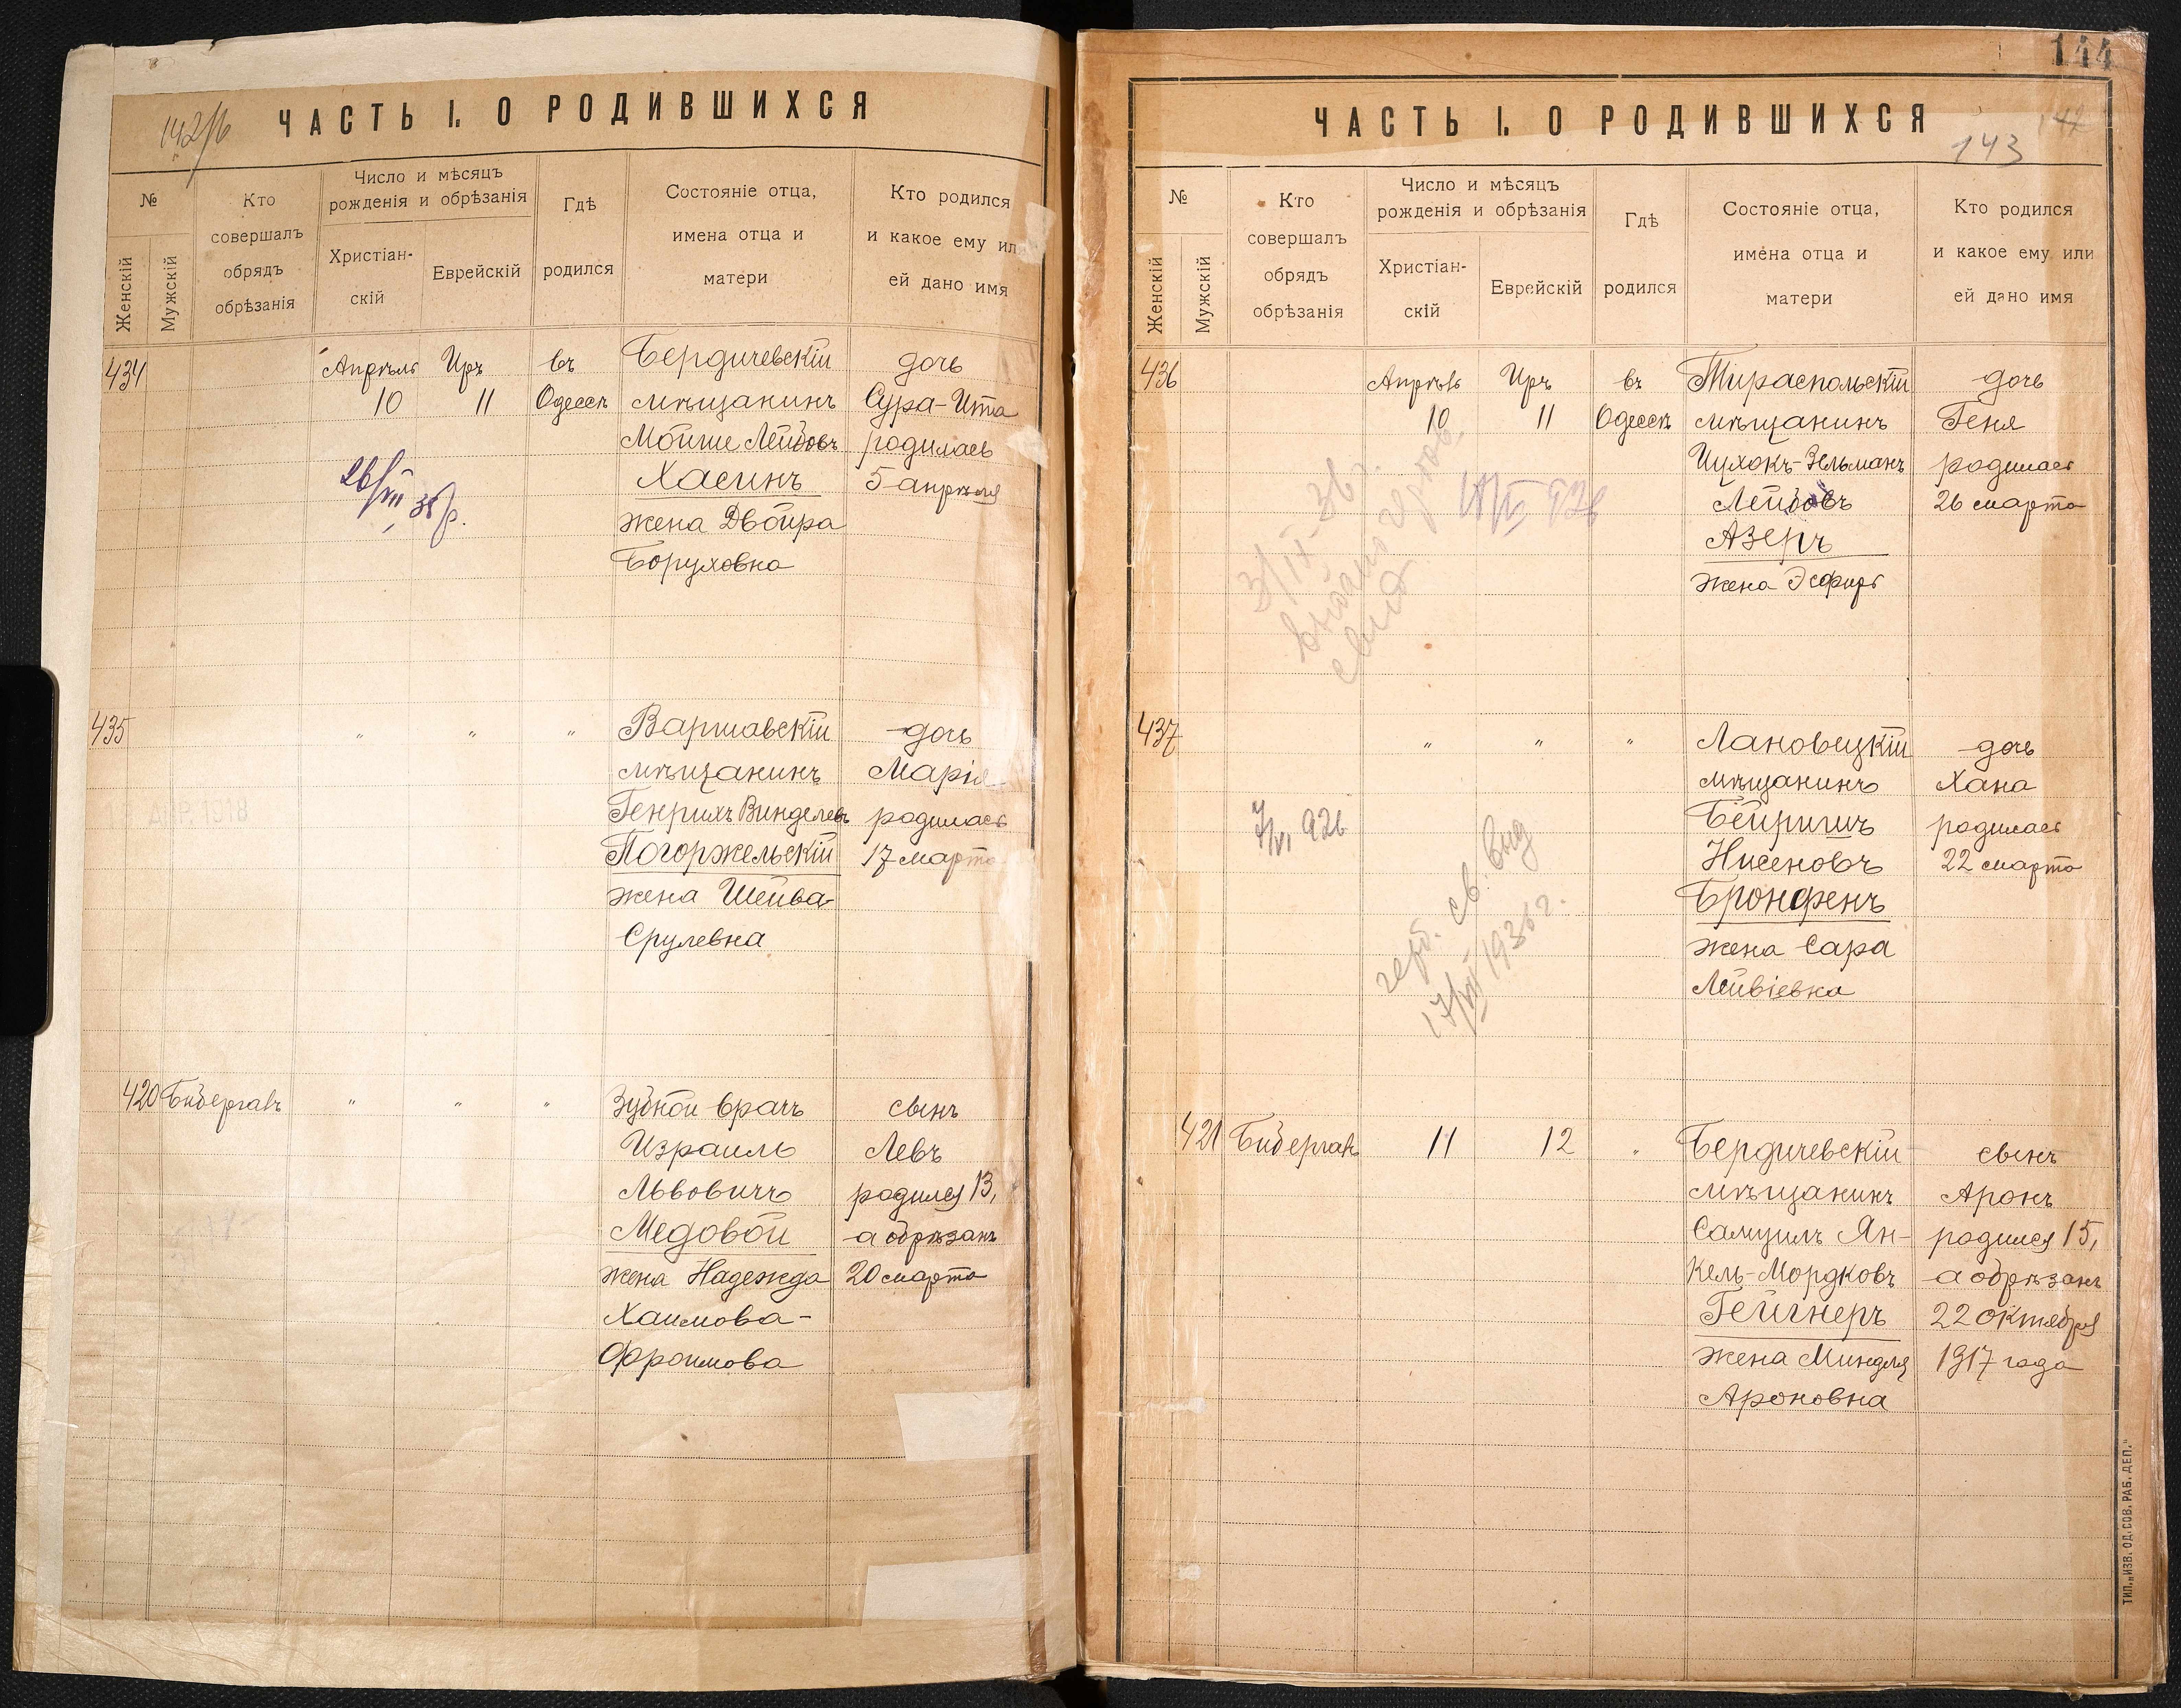 142/б
ЧАСТЬ I. О РОДИВШИХСЯ
№
Женскій
Мужскій
Кто
совершалъ
обрядъ
обрѣзанія
Число и мѣсяцъ
рожденія и обрѣзанія
Христіан-
скій
Еврейскій
Гдѣ
родился
Состояніе отца,
имена отца и
матери
Кто родился
и какое ему ил
ей дано имя
434 Апрѣль Иръ въ Бердичевскій дочь
10 11 Одессѣ мѣщанинъ Сура-Ита
Мойше Лейбовъ родилась
Хасинъ 5 апрѣля
жена Двойра
Боруховна
26/VII 35 г.
435 " " " Варшавскій дочь
мѣщанинъ Марія
Генрихъ Винделевъ родилась
Погоржельскій 17 марта
жена Шейва-
Срулевна
АПР. 1918
420 Бибергалъ " " " Зубной врачъ сынъ
Израиль Левъ
Львовичъ родился 13,
Медовой а обрѣзанъ
жена Надежда 20 марта
Хаимова-
Фроимова
144
ЧАСТЬ I. О РОДИВШИХСЯ
142
143
№
Женскій
Мужскій
Кто
совершалъ
обрядъ
обрѣзанія
Число и мѣсяцъ
рожденія и обрѣзанія
Христіан-
скій
Еврейскій
Гдѣ
родился
Состояніе отца,
имена отца и
матери
Кто родился
и какое ему или
ей дано имя
436 Апрѣль Иръ въ Тираспольскій дочь
10 11 Одессѣ мѣщанинъ Геня
Ицхокъ-Зельманъ родилась
Лейбовъ 26 марта
Азеръ
жена Эсфирь
3/IX-36 г.
выдано
свид
926
437 " " " Лановецкій дочь
мѣщанинъ Хана
Бейришъ родилась
Нисеновъ 22 марта
Бронфенъ
жена Сара
Лейвіевна
7/VI 926
герб. св. выд
17/VII 1936 г.
421 Бибергалъ 11 12 " Бердичевскій сынъ
мѣщанинъ Аронъ
Самуилъ Ян- родился 15,
кель-Мордковъ а обрѣзанъ
Гейгнеръ 22 октября
жена Миндля 1917 года
Ароновна
ТИП. „ИЗВ. ОД. СОВ. РАБ. ДЕП."